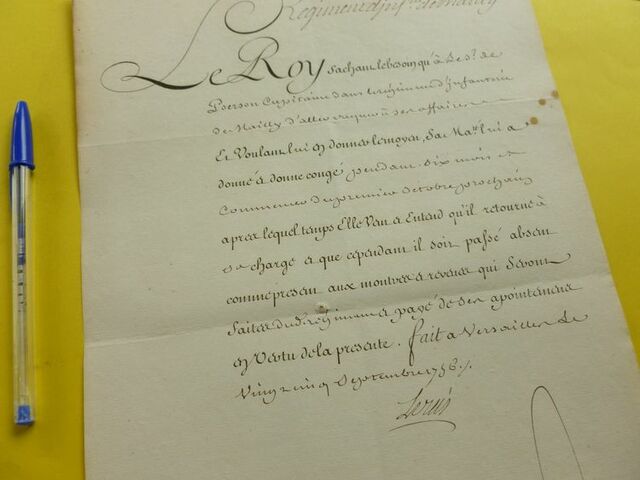 Regiment d'inf.rie de Mailly
Le Roy sachant le besoin qu'a le S.r de
Pierson Capitaine dans le regiment d'Infanterie
de Mailly d'aller vaquer à ses affaires
Et Voulant lui en donner le moyen, Sa Ma.té lui a
donné et donne congé pendant six mois et
Commencer du premier Octobre prochain
apres lequel temps Elle Veut et Entend qu'il retourne à
sa charge et que cependant il soit passé absent
comme present aux montres et reveues qui Seront
faites dud. régiment et payé de ses apointemens
en Vertu de la presente. fait a Versailles le
Vingt cinq Septembre 1756./.